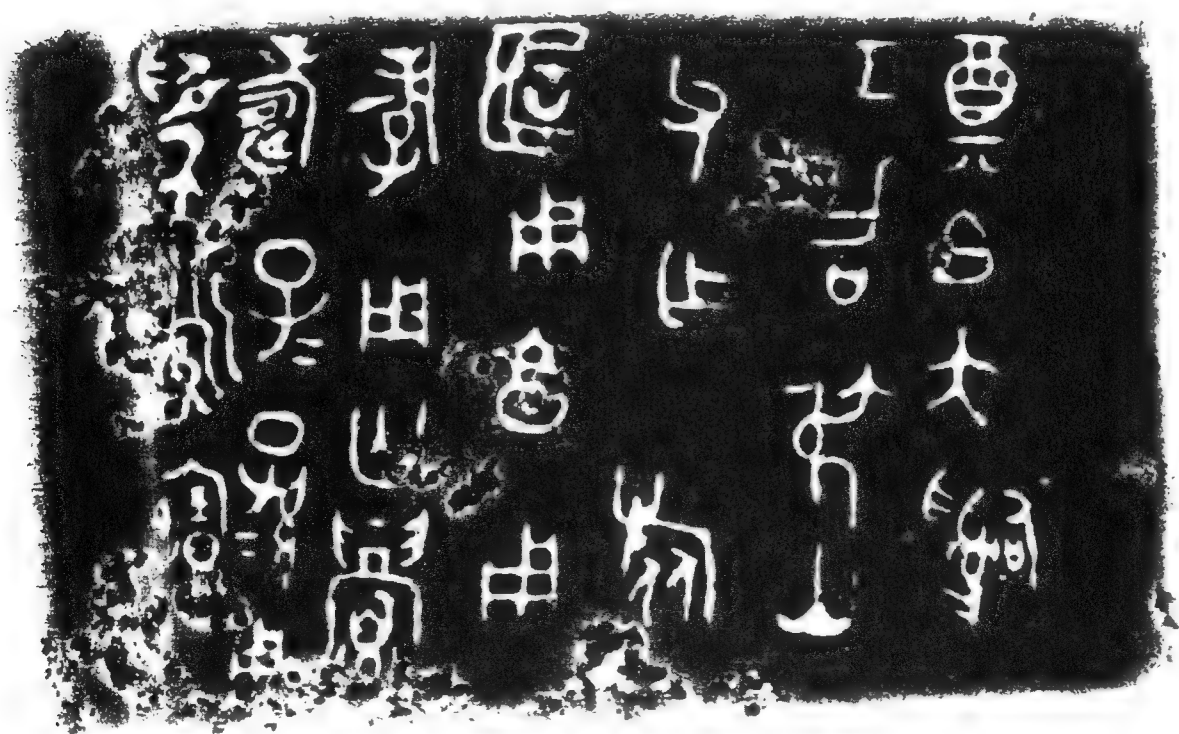 奠白大𤔲
工召弔山
父乍旅
𠤳用亯用
孝用匄眉
壽子=孫=用
爲永寶